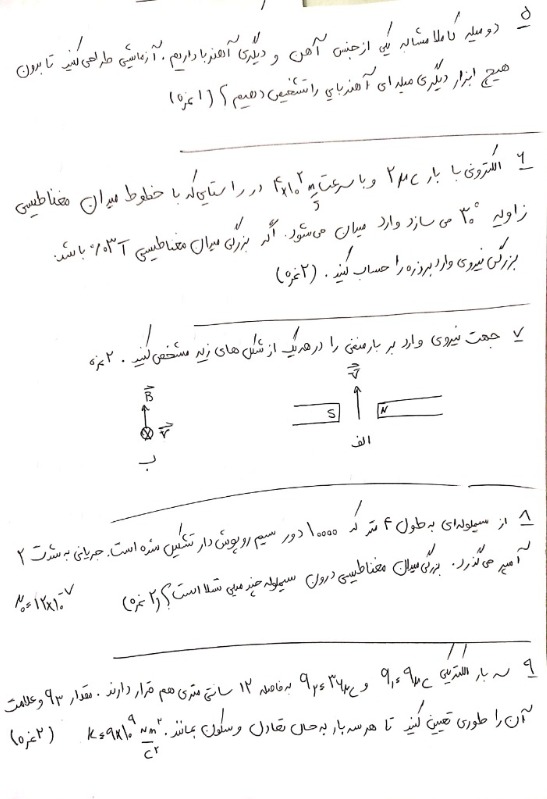 ۵ دو میله کاملا مشابه یکی از جنس آهن و دیگری آهنربا داریم. آزمایشی طراحی کنید تا بدون
هیچ ابزار دیگری میله ای آهنربایی را تشخیص دهیم؟ (۱ نمره)
۶ الکترونی با بار ۲μc و با سرعت ۴×۱۰² m/s در راستایی که با خطوط میدان مغناطیسی
زاویه ۳۰° می سازد وارد میدان می شود. اگر بزرگی میدان مغناطیسی ۰/۰۳T باشد.
بزرگی نیروی وارد بر ذره را حساب کنید. (۲ نمره)
۷ جهت نیروی وارد بر بار منفی را در هریک از شکل های زیر مشخص کنید. ۲ نمره
B V
S N
V
ب الف
۸ از سیملوله ای به طول ۴ متر که ۱۰۰۰۰ دور سیم روپوش دار تشکیل شده است. جریانی به شدت ۲
آمپر می گذرد. بزرگی میدان مغناطیسی درون سیملوله چند میلی تسلا است؟ (۲ نمره) μ₀=۱۲×۱۰⁻⁷
۹ سه بار الکتریکی q₁=۹μc و q₂=۳۶μc به فاصله ۱۲ سانتی متری هم قرار دارند. مقدار q₃ و علامت
آن را طوری تعیین کنید تا هر سه بار به حال تعادل و سکون بمانند. k=۹×۱۰⁹ Nm²/C² (۲ نمره)